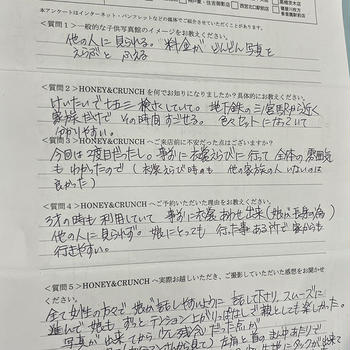 本アンケートはインターネット・パンフレットなどの媒体でご紹介させていただくことがあります。
＜質問１＞一般的な子供写真館のイメージをお教えください。
他の人に見られる。料金が どんどん写真を
えらぶと ふえる
＜質問２＞HONEY&CRUNCHを何でお知りになりましたか？具体的にお教えください。
けいたいで 七五三 検さくしていて。地下鉄の三宮駅から近く
家族だけで その時間すごせる。色々セットになってて
分かりやすい。
＜質問３＞HONEY&CRUNCHへご来店前に不安だった点はございますか？
今回は2度目だったし、事前に衣装えらびに行って全体の雰囲気
もわかったので (衣装えらび時のも 他の家族の人いないのは
良かった)
＜質問４＞HONEY&CRUNCHへご予約いただいた理由をお教えください。
3才の時も利用していて 事前に衣装あわせ出来(娘が長身の為)
他の人に見られず。娘にとっても 行った事ある所で 家からも
行きやすい。
＜質問５＞HONEY&CRUNCHへ実際お越しいただき、ご撮影していただいた感想をお聞かせ
ください。
全て女性の方々で 娘が話しやすいように 話して下さり、スムーズに
進んで 娘も ずっと テンション上がりっぱなしで 親としても楽しかった。
写真が出来てから 少し残念だった点が